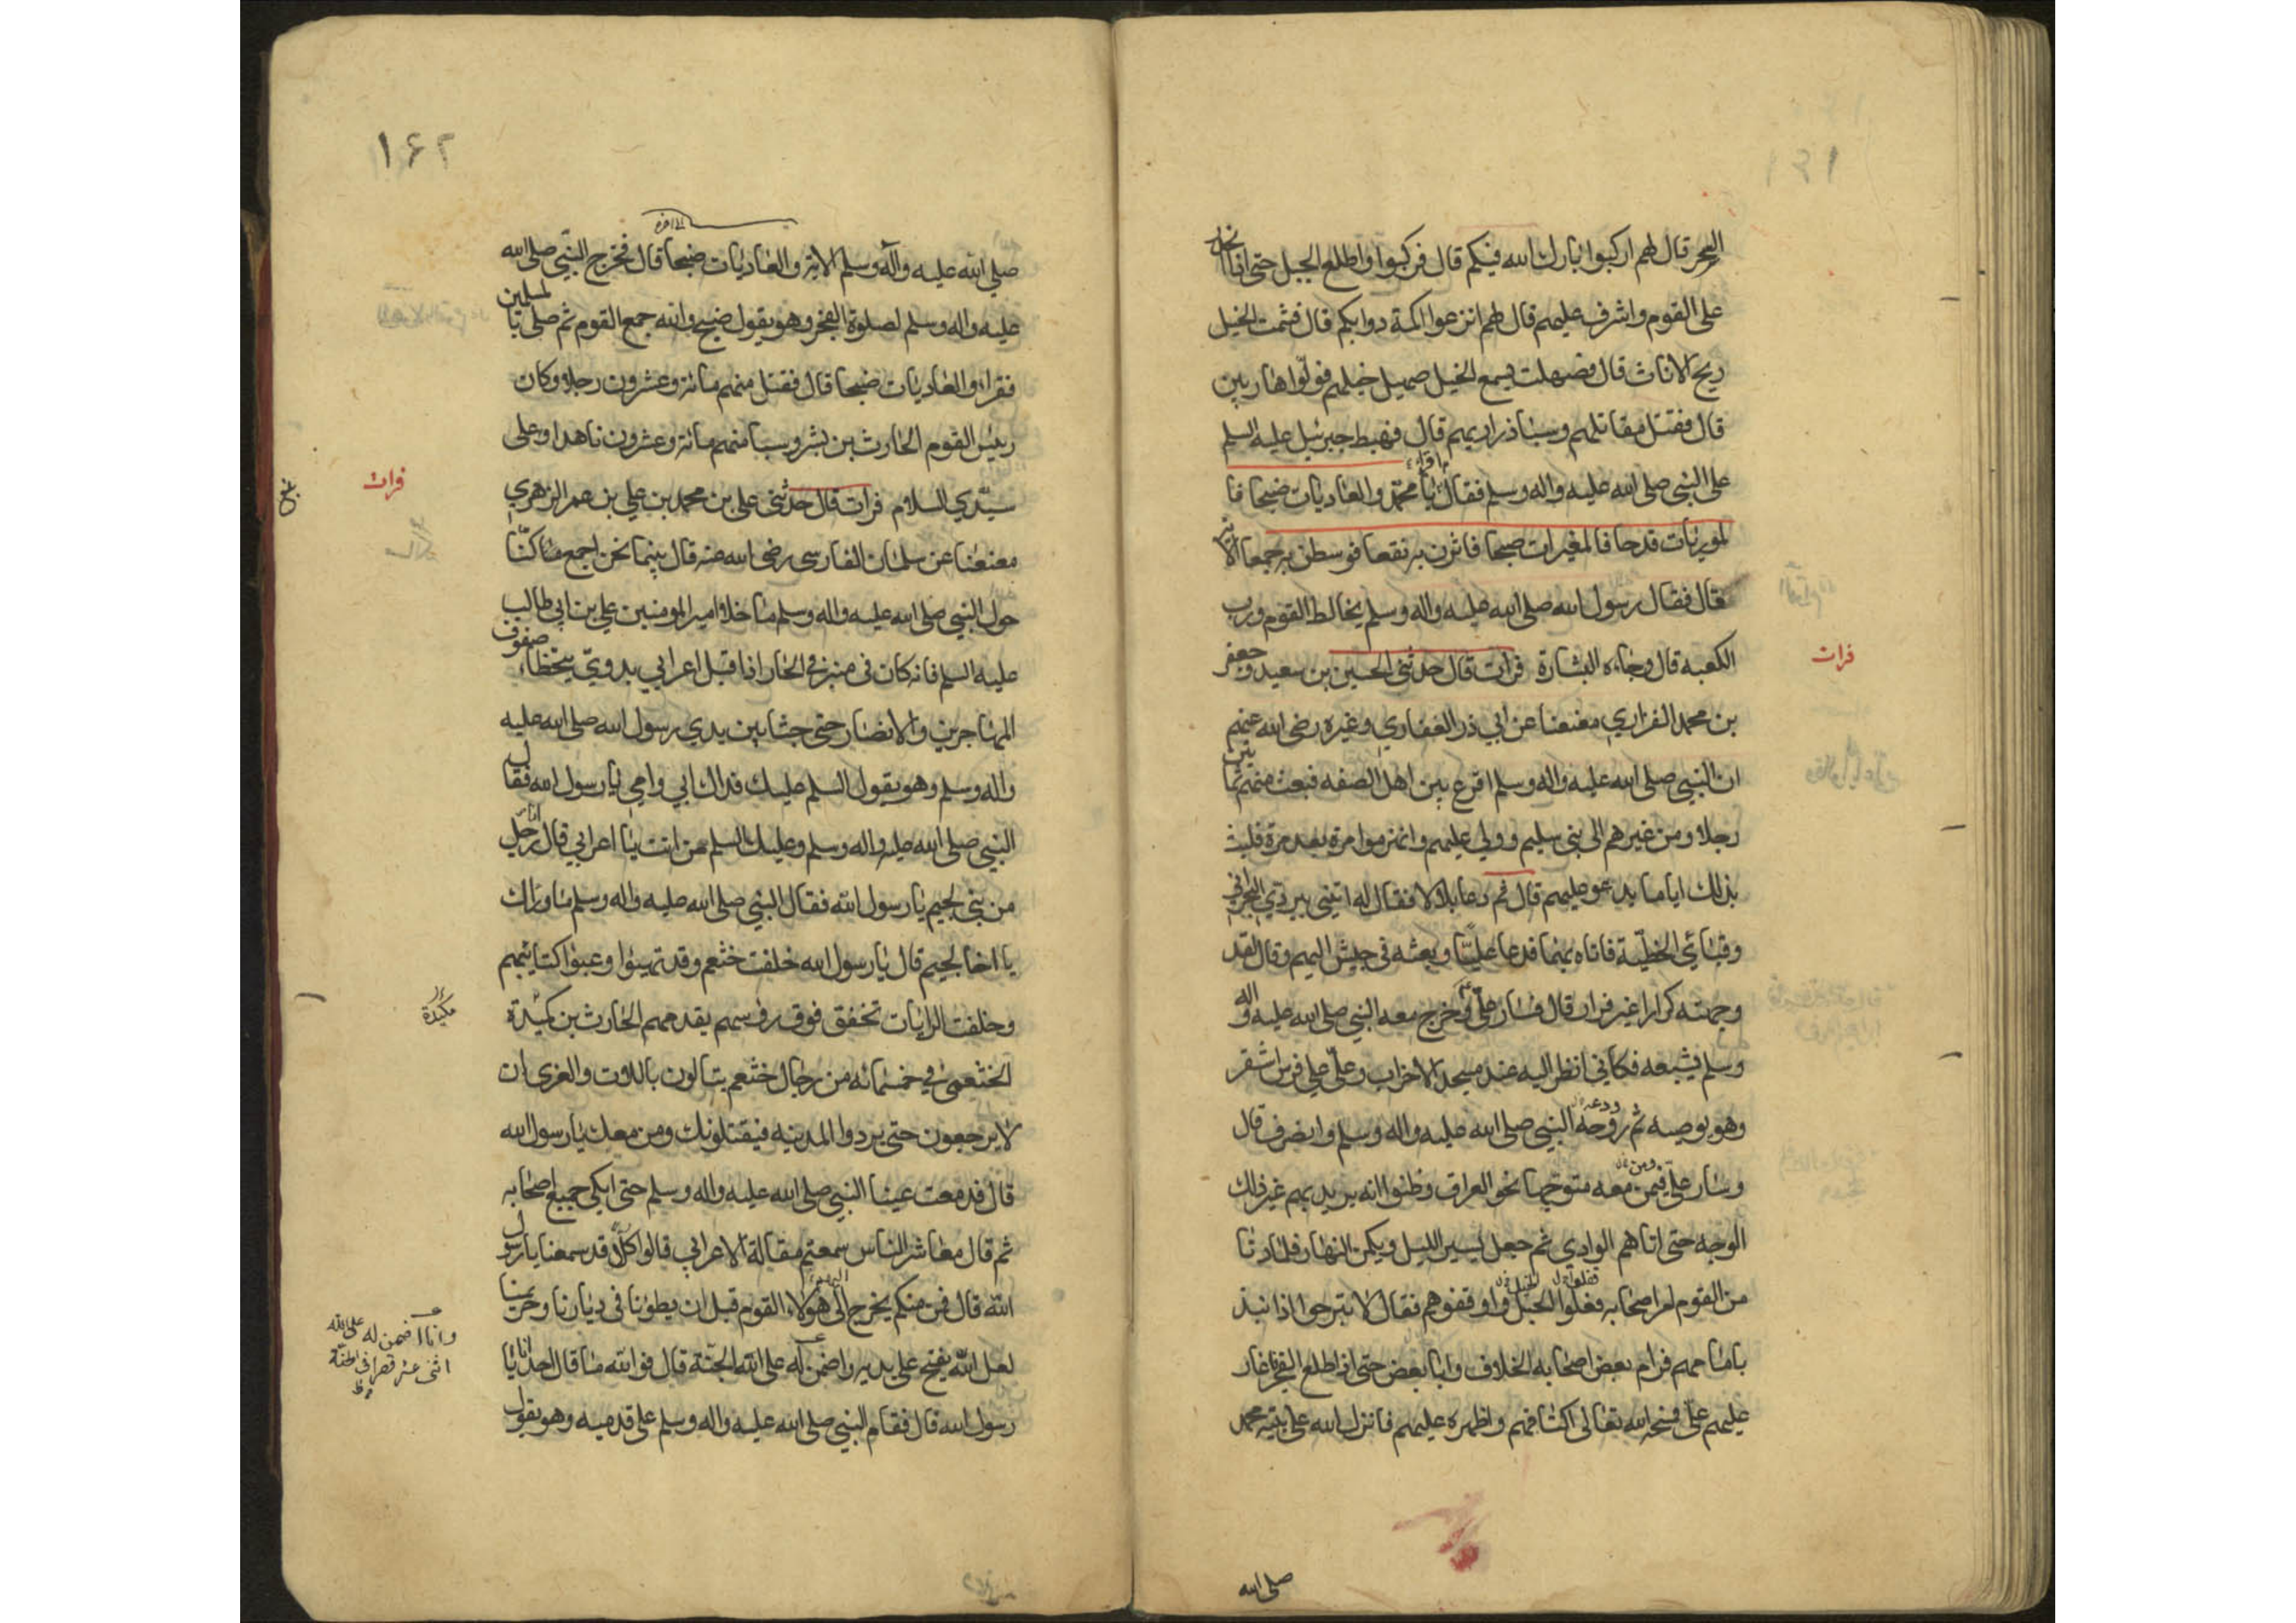 الفجر قال لهم اركبوا بارك الله فيكم قال فركبوا واطلع الجبل حتى اذا انحدر
على القوم واشرف عليهم قال لهم انزعوا اكمة دوابكم قال فشمت الخيل
ريح الاناث قال فصهلت فسمع الخيل صهيل خيلهم فولّوا هاربين
قال فقتل مقاتلهم وسبا ذراريهم قال فهبط جبرئيل عليه السلم
على النبي صلى الله عليه واله وسلم فقال يا محمّد والعاديات ضبحا فا
لموريات قدحا فالمغيرات صبحا فاثرن به نقعا فوسطن به جمعا الاية
قال فقال رسول الله صلى الله عليه واله وسلم يخالط القوم ورب
الكعبه قال وجاءه البشارة فرات قال حدثني الحسين بن سعيد وجعفر
بن محمد الفزاري معنعنا عن ابي ذر الغفاري وغيره رضى الله عنهم
ان النبي صلى الله عليه واله وسلم اقرع بين اهل الصفه فبعث منهم ثمانين
رجلا ومن غيرهم الى بني سليم وولي عليهم وانهزموا مرة بعد مرة فلبث
بذلك اياما يدعو عليهم قال ثم دعا بلالا فقال له ايتيني ببردي النجراني
وقبائي الخطيّة فاتاه بهما فدعا عليّا وبعثه في جيش اليهم وقال لقد
وجهته كرارا غير فرار قال فسار عليّ وخرج معه النبي صلى الله عليه واله
وسلم يشيعه فكأني انظر اليه عند مسجد الاحزاب وعليّ على فرس اشقر
وهو يوصيه ثم ودعه النبي صلى الله عليه واله وسلم وانصرف قال
وسار علي فيمن معه متوجها نحو العراق وظنوا انه يريد بهم غير ذلك
الوجه حتى اتاهم الوادي ثم جعل يسير الليل ويكمن النهار فلما دنا
من القوم امر اصحابه فعلوا الخيل واوقفوهم فقال لا تبرحوا اذ انبذ
بامامهم فرام بعض اصحابه الخلاف وابا بعض حتى اذ اطلع الفجر اغار
عليهم عليّ فمنحه الله تعالى اكتافهم واظهره عليهم فانزل الله على نبيّه محمد
صلى الله
فرات
۱۶۲
صلى الله عليه وآله وسلم الاية والعاديات ضبحا قال فخرج النبّي صلى الله
عليه واله وسلم لصلوة الفجر وهو يقول صبح والله جمع القوم ثم صلى بالمسلمين
فقراء والعاديات ضبحا قال فقتل منهم مائة وعشرون رجلا وكان
رئيس القوم الحارث بن بشر وسبا منهم مائة وعشرون ناهدا وعلى
سيّدي السلام فرات قال حدثني علي بن محمد بن علي بن عمر الزهري
معنعنا عن سلمان الفارسي رضى الله عنه قال بينما نحن اجمع ما كنّا
حول النبي صلى الله عليه واله وسلم ما خلا امير المومنين علي بن ابي طالب
عليه السلم فانه كان في منبر في الحار اذا قبل اعرابي بدويّ يتخطّا صفوف
المهاجرين والانصار حتى جثا بين يدي رسول الله صلى الله عليه
واله وسلم وهو يقول السلم عليك فداك ابي وامي يا رسول الله فقال
النبي صلى الله عليه واله وسلم وعليك السلم من انت يا اعرابي قال رجل
من بني لجيم يا رسول الله فقال النبي صلى الله عليه واله وسلم ما وراك
يا اخا لجيم قال يا رسول الله خلفت خثعم وقد تهيئوا وعبوا كتائبهم
وخلفت الرايات تخفق فوق رؤسهم يقدمهم الحارث بن مكيدة
الخثعمي في خمسمائه من رجال خثعم يتالون باللات والعزى ان
لا يرجعون حتى يردوا المدينه فيقتلونك ومن معك يا رسول الله
قال فدمعت عينا النبي صلى الله عليه واله وسلم حتى ابكى جميع اصحابه
ثم قال معاشر الناس سمعتم مقالة الاعرابي قالوا كلّ قد سمعنا يا رسول
الله قال فمن منكم يخرج الى هولاء القوم قبل ان يطؤنا في ديارنا وحريمنا
لعل الله يفتح على يديه واضمن له على الله الجنّة قال فوالله ما قال احد انا يا
رسول الله قال فقام النبي صلى الله عليه واله وسلم على قدميه وهو يقول
فرات
مكيدة
وانا اضمن له على الله
اثنى عشر قصرا في الجنّة